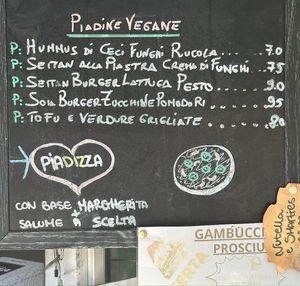 PIADINE VEGANE
P: HUMMUS DI CECI FUNGHI RUCOLA.....7.0
P: SEITAN ALLA PIASTRA CREMA DI FUNGHI...7.5
P: SEITAN BURGER LATTUGA PESTO.....9.0
P: SOIA BURGER ZUCCHINE POMODORI.....9.5
P: TOFU E VERDURE GRIGLIATE.....8.0
PIADIZZA
CON BASE MARGHERITA
+
SALUME A SCELTA
Nutella
e Smarties
GAMBUCC
PROSCIU